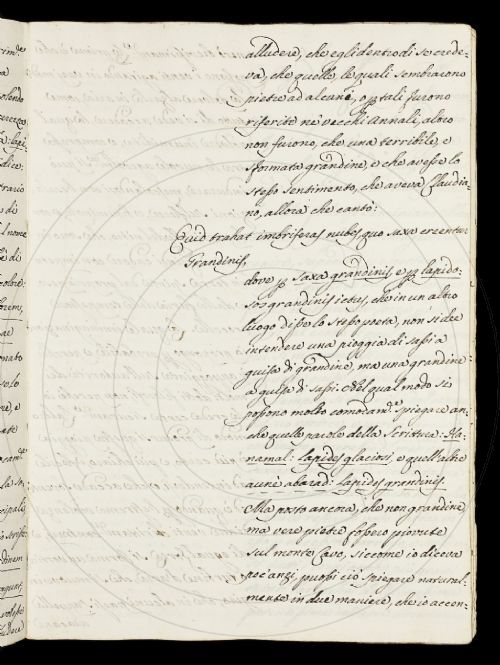 alludere, che egli dentro di se crede-
va, che quelle, le quali sembrarono
pietre ad alcuni, e p tali furono
riferite ne' vecchi Annali, altro
non furono, che una terribile, e
sformata grandine, e che avesse lo
stesso sentimento, che aveva Claudia-
no, allora che cantò:
Quid trahat imbriferas nubes, quo saxa creentur
Grandinis,
dove p saxa grandinis, e p lapido-
sos grandinis ictus, che in un altro
luogo disse lo stesso poeta, non si dee
intendere una pioggia di sassi a
guisa di grandine, ma una grandine
a guisa di sassi. Nel qual modo si
possono molto comodam.e spiegare an-
che quelle parole della Scrittura: Ha-
namal: lapides glaciei, e quell'altre
abarad: lapides grandinis.
Ma posto ancora, che non grandine,
ma vere pietre fossero piovute
sul monte Cavo, siccome io diceva
poc'anzi, puossi ciò spiegare natural-
mente in due maniere, che io accen-